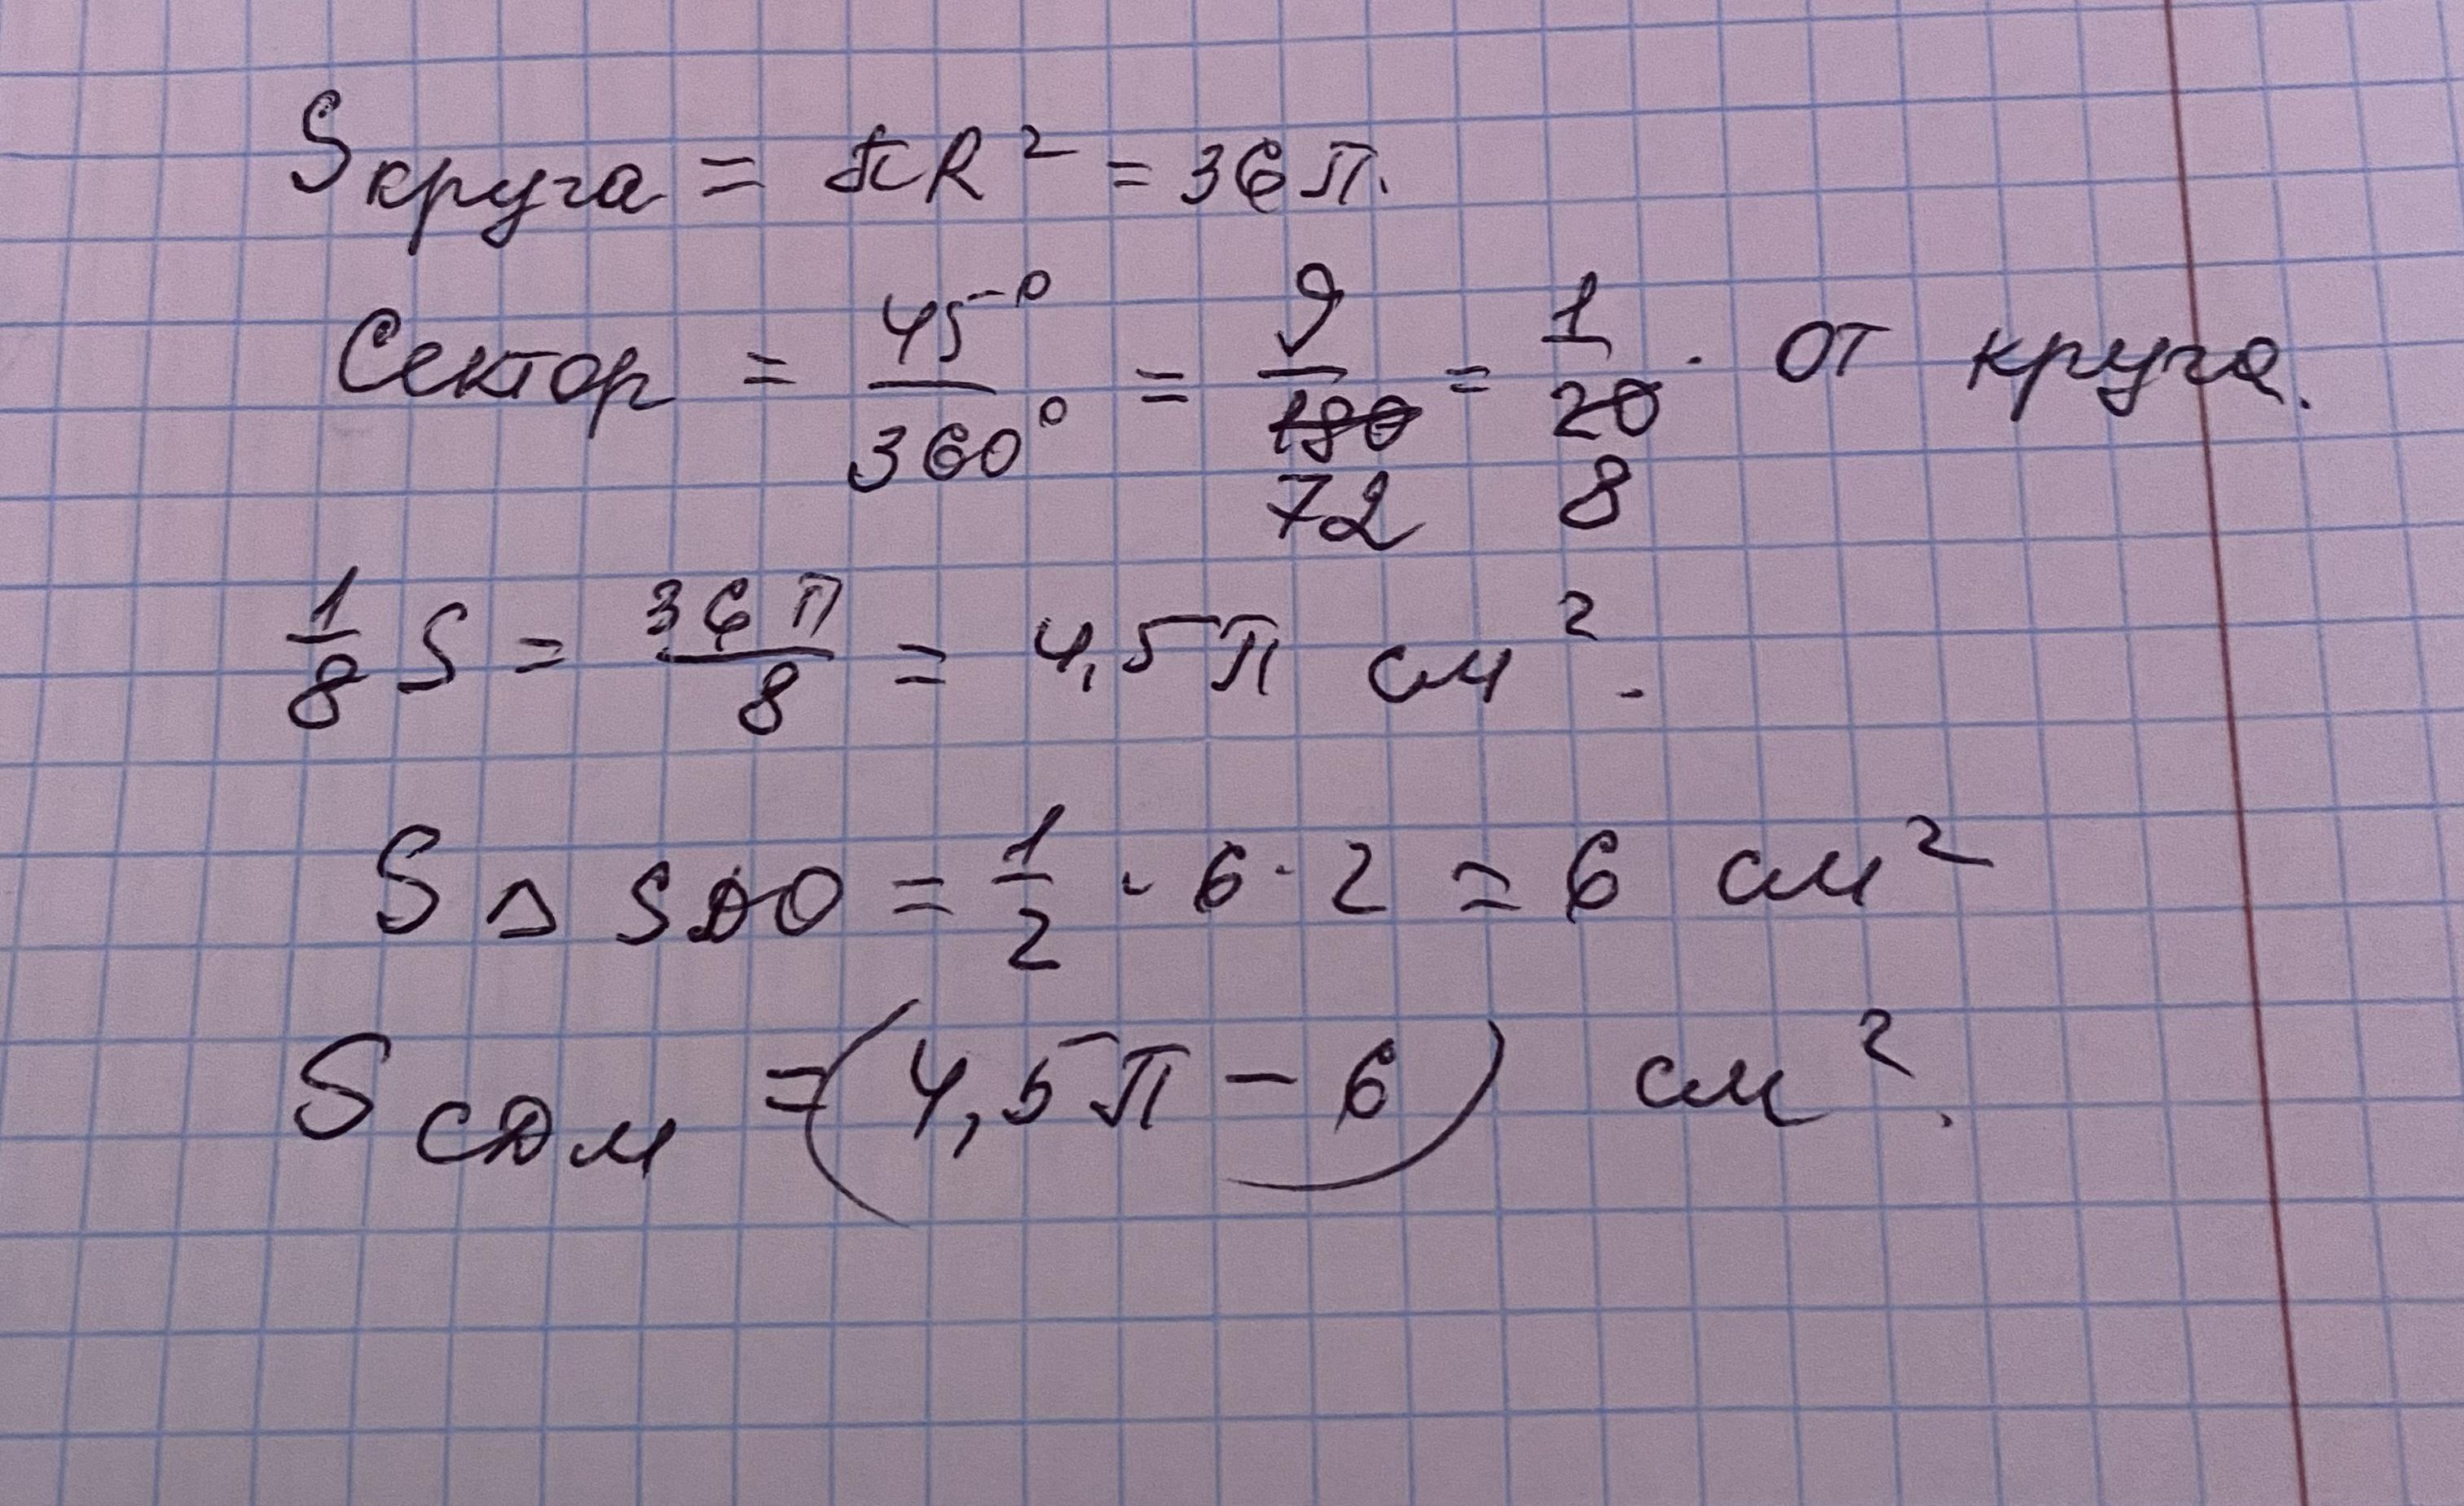 Sкруга = πR² = 36π.
Сектор = 45°/360° = 9/~~180~~ 72 = 1/~~20~~ 8 · от круга.
1/8 S = 36π/8 = 4,5π см².
S △ SDO = 1/2 · 6 · 2 = 6 см²
S CDM = (4,5π − 6) см².